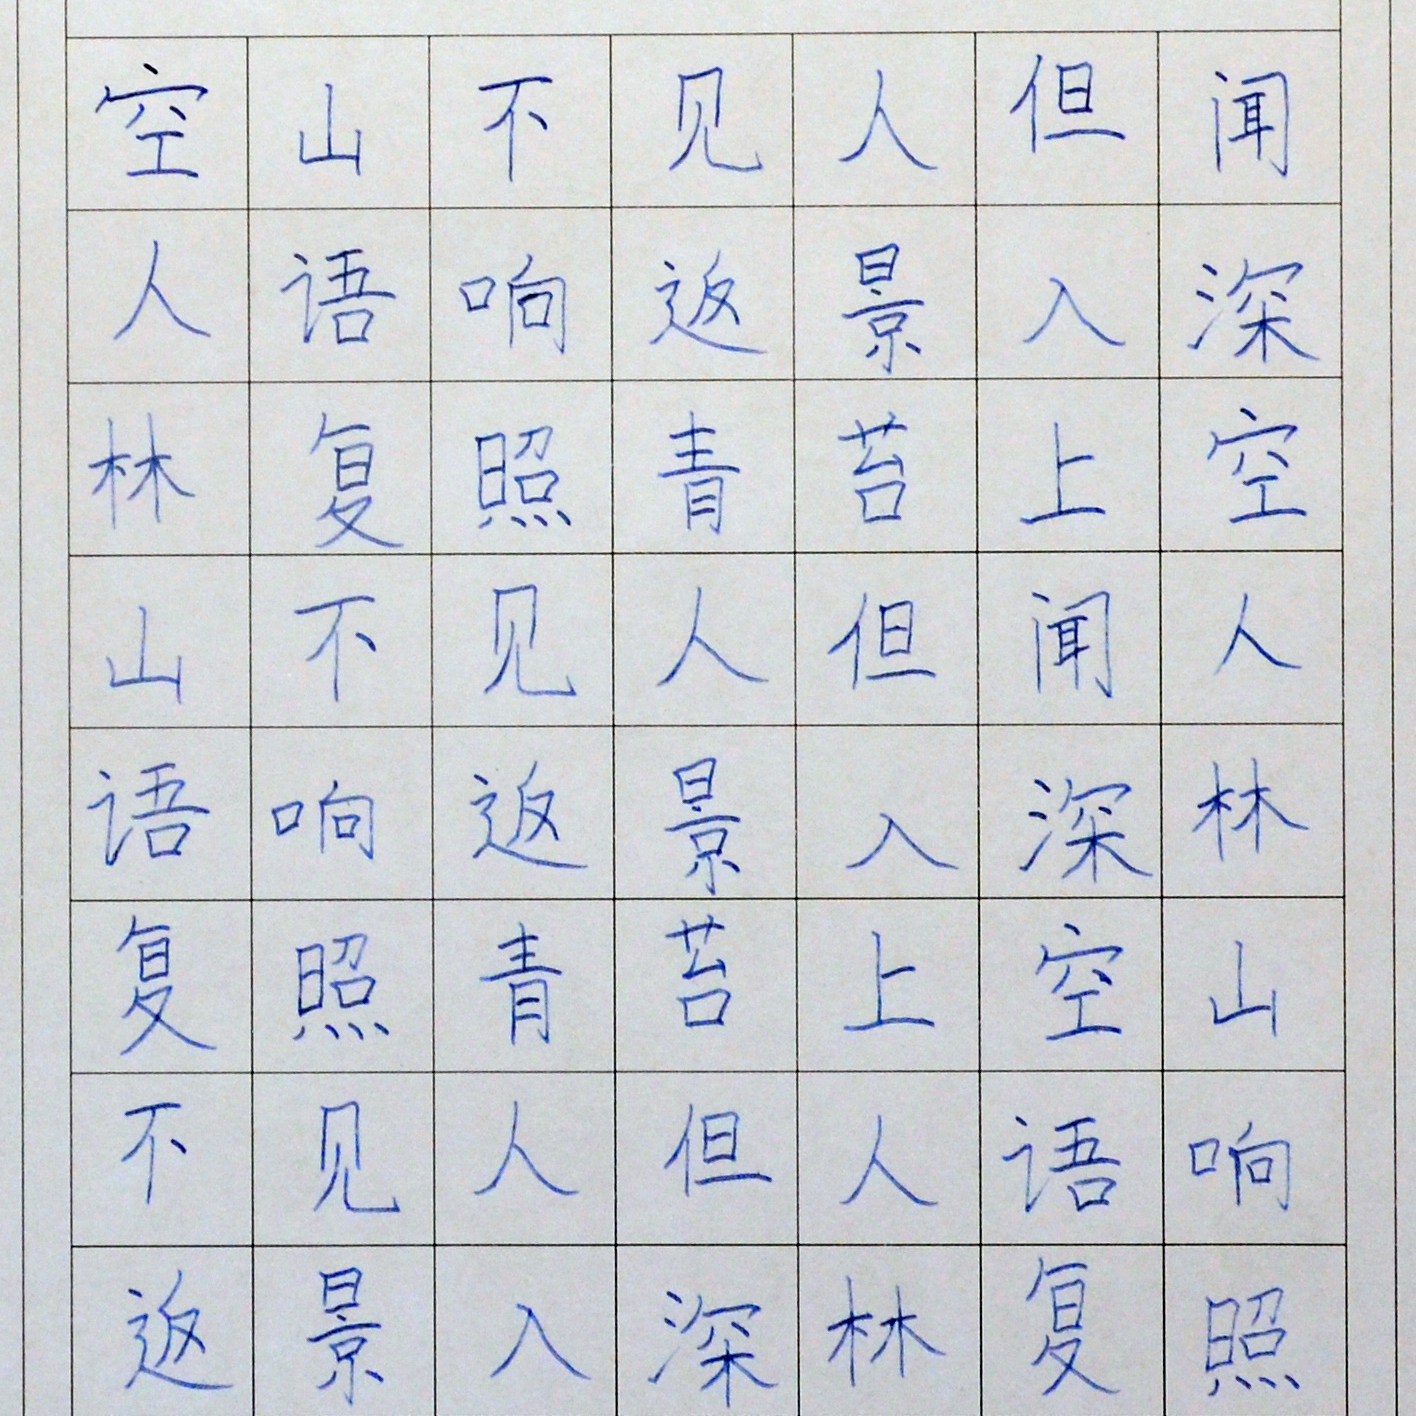 空山不见人但闻
人语响返景入深
林复照青苔上空
山不见人但闻人
语响返景入深林
复照青苔上空山
不见人但人语响
返景入深林复照